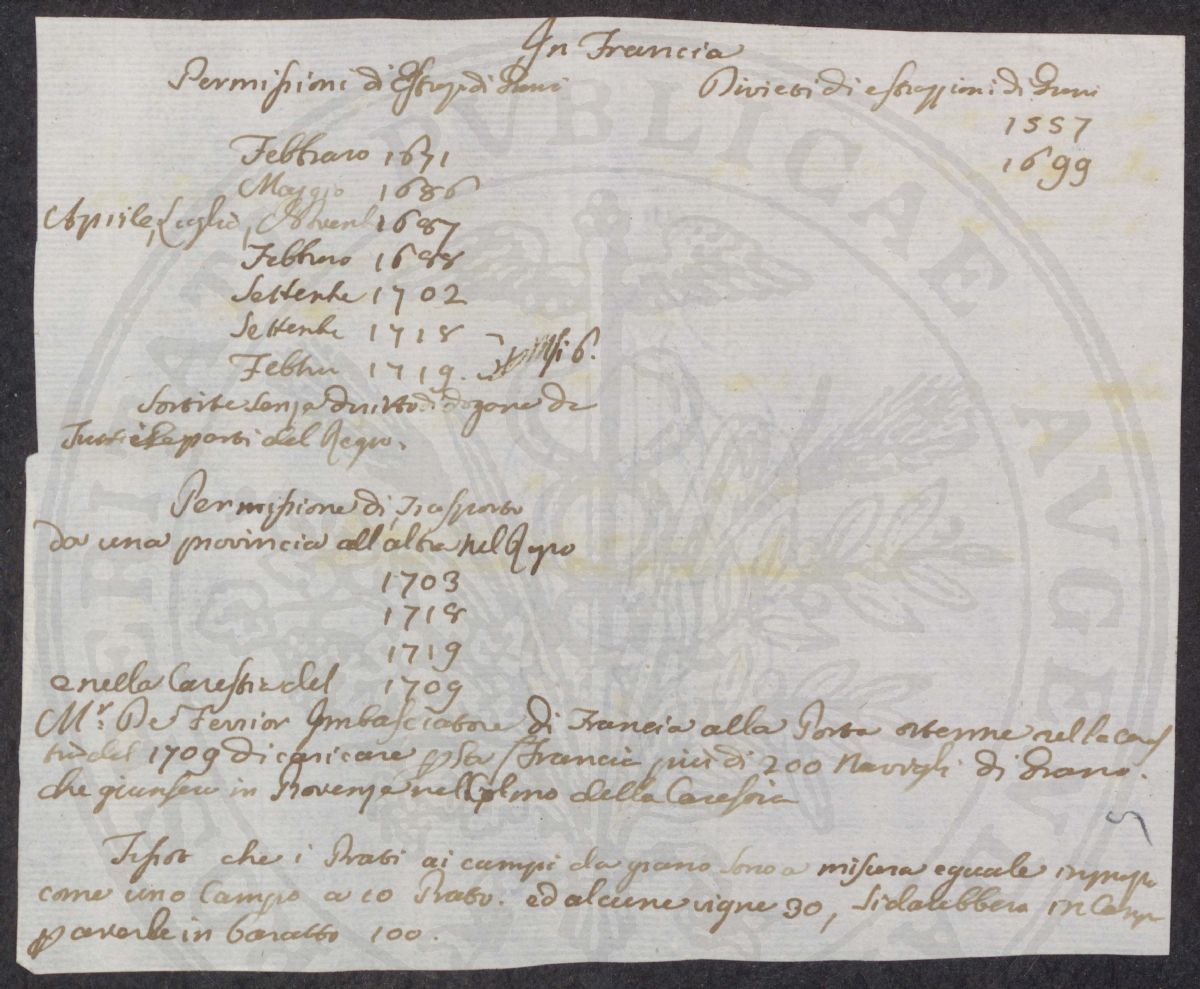 In Francia
Permissioni di Estraz di Grani
Divieti di estrazzioni di Grani
1557
1699
Febbraro 1671
Maggio 1686
Aprile, Luglio, Novemb 1687
Febbraro 1688
Settembe 1702
Settembe 1718
Febbru 1719. 6.
sortite senza diritto di dogane da
Tutti le porti del Regno.
Permissione di Trasporto
da una provincia all altra nel Regno
1703
1718
1719
e nella Carestia del 1709
Mr. De Ferrior Imbasciatore di Francia alla Porta ottenne nella Cares
tia del 1709 di caricare p la Francia più di 200 Navigli di Grano.
che giunsero in Provenza nel colmo della Carestia
che i Prati ai campi da grano sono a misura eguale in
come uno Campo a 10 Prato. ed alcune vigne 30, si darebbero in
p averle in baratto 100.
PVBLICAE AVGE